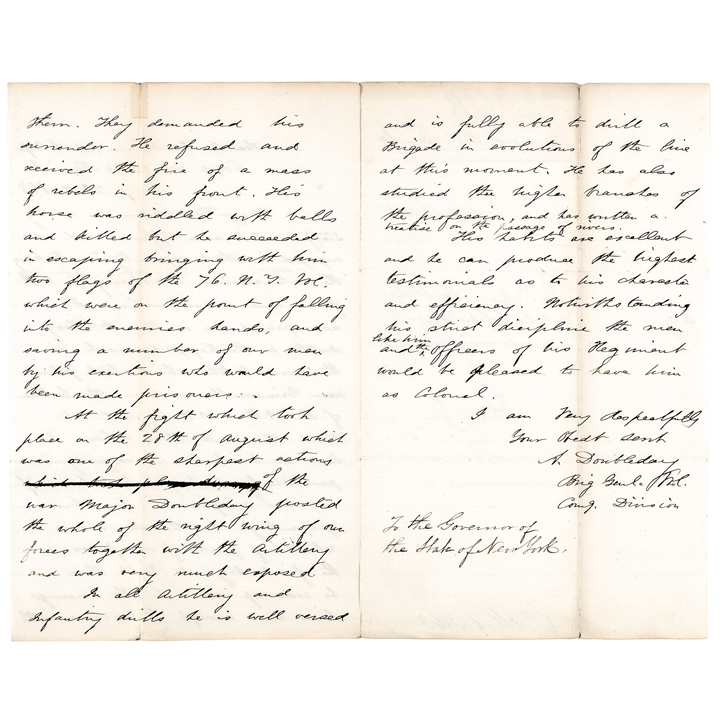 them. They demanded his
surrender. He refused and
received the fire of a mass
of rebels in his front. His
horse was riddled with balls
and killed but he succeeded
in escaping bringing with him
two flags of the 76. N. Y. Vol.
which were on the point of falling
into the enemies hands, and
saving a number of our men
by his exertions who would have
been made prisoners.
At the fight which took
place on the 28th of August which
was one of the sharpest actions
of the
war Major Doubleday posted
the whole of the right wing of our
forces together with the Artillery
and was very much exposed
In all Artillery and
Infantry drills he is well versed
and is fully able to drill a
Brigade in evolutions of the line
at this moment. He has also
studied the higher branches of
the profession, and has written a
treatise on the passage of rivers.
His habits are excellent
and he can produce the highest
testimonials as to his character
and efficiency. Notwithstanding
his strict discipline the men
like him
and the officers of his Regiment
would be pleased to have him
as Colonel.
I am Very Respectfully
Your Obedt Servt
A. Doubleday
Brig Genl. Vol.
Comg. Division
To the Governor of
the State of New York.